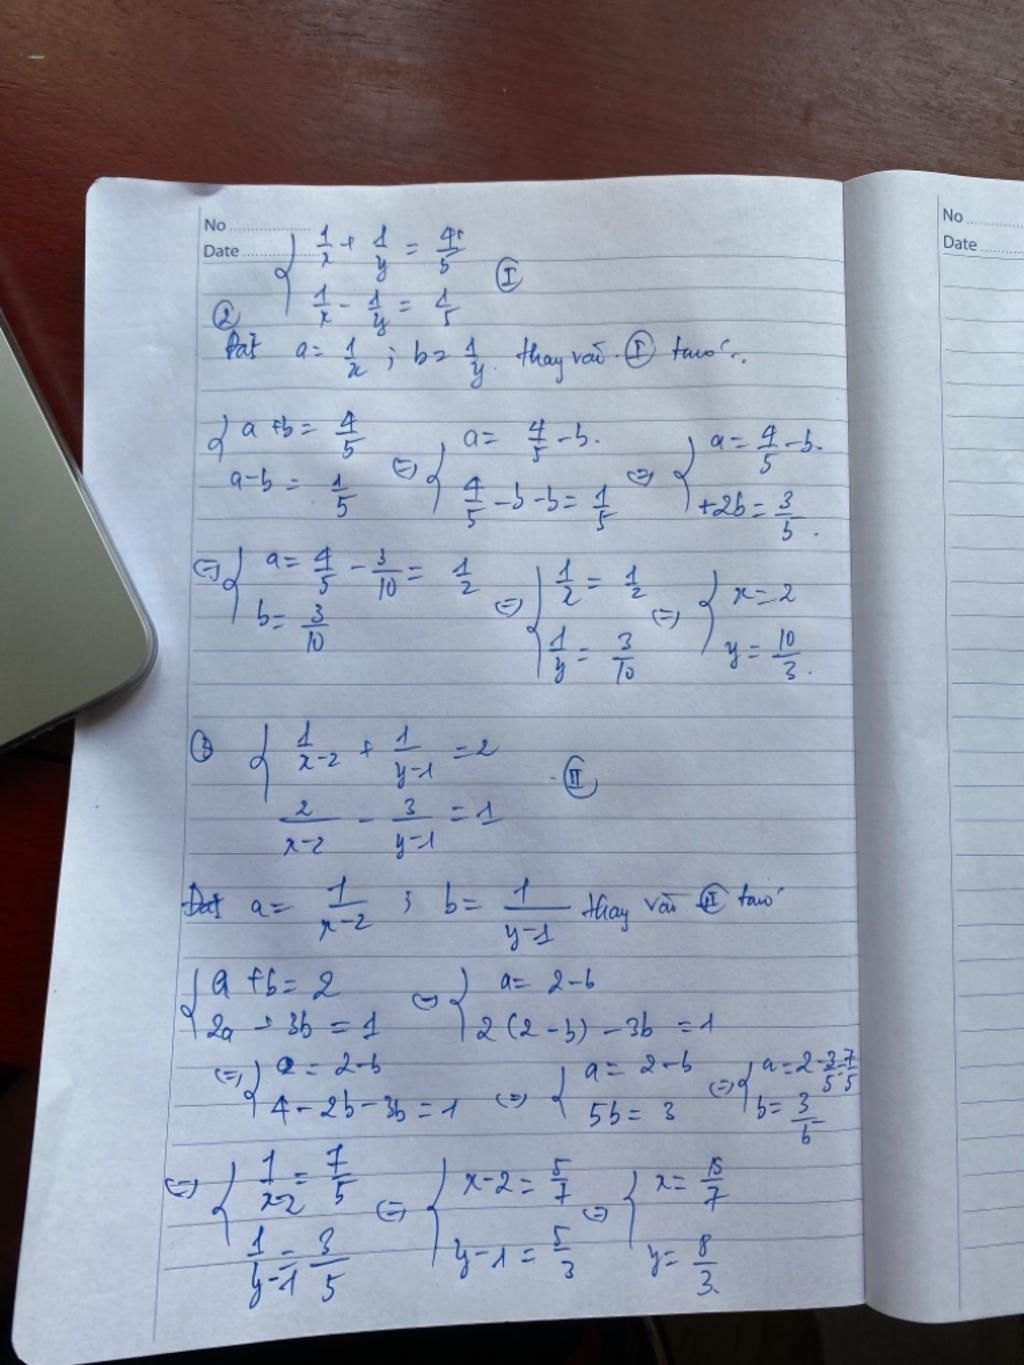 No
Date
1/x + 1/y = 4/5
(I)
1/x - 1/y = 1/5
②
Đặt a = 1/x ; b = 1/y thay vào (I) ta có
{ a + b = 4/5
a - b = 1/5
(=) { a = 4/5 - b.
4/5 - b - b = 1/5
(=) { a = 4/5 - b.
+2b = 3/5.
(=) { a = 4/5 - 3/10 = 1/2
b = 3/10
(=) { 1/x = 1/2
1/y = 3/10
(=) { x = 2
y = 10/3.
{ 1/x-2 + 1/y-1 = 2
(II)
2/x-2 - 3/y-1 = 1
Đặt a = 1/x-2 ; b = 1/y-1 thay vào (II) ta có
{ a + b = 2
2a - 3b = 1
(=) { a = 2 - b
2(2 - b) - 3b = 1
(=) { a = 2 - b
4 - 2b - 3b = 1
(=) { a = 2 - b
5b = 3
(=) { a = 2 - 3/5 = 7/5
b = 3/5
(=) { 1/x-2 = 7/5
1/y-1 = 3/5
(=) { x - 2 = 5/7
y - 1 = 5/3
(=) { x = 15/7
y = 8/3.
No
Date